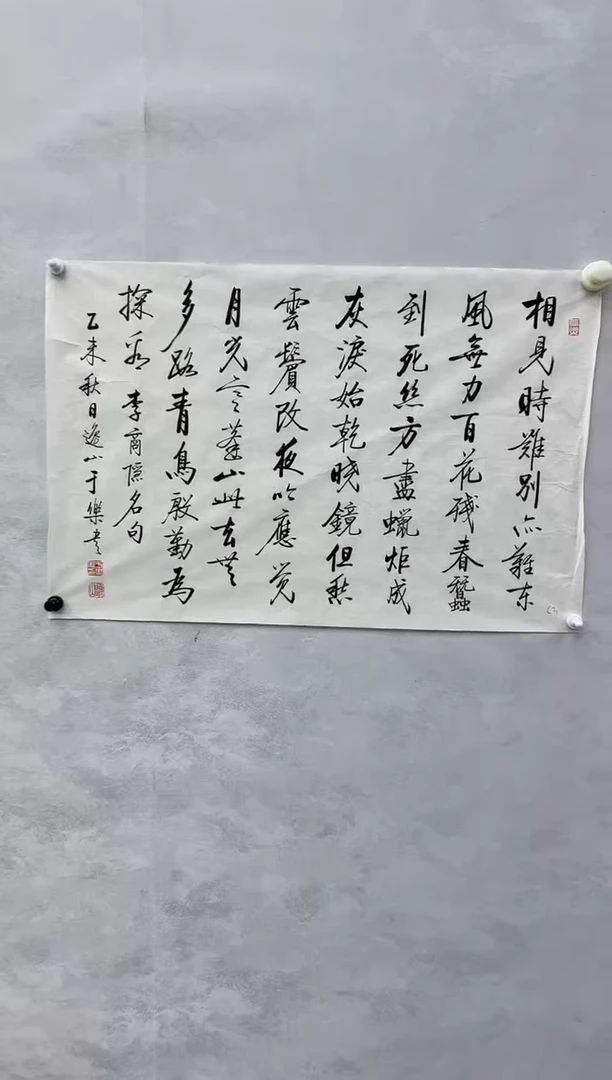 相見時難别亦難东
風無力百花殘春蠶
到死絲方盡蠟炬成
灰淚始乾晓鏡但愁
雲鬢改夜吟應觉
月光寒蓬山此去無
多路青鳥殷勤為
探看 李商隱名句
乙未秋日逸山于樂书